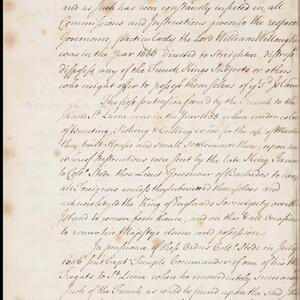 and as such has been constantly inserted in all
Commissions and Instructions given to the respective
Governours, particularly the Lord William Willoughby
was in the year 1666 directed to Streighten, distress
dispossess any of the French Kings Subjects or others
who might offer to possess themselves of ye sd Island
The first pretension form'd by the French to the
Island St Lucia was in the Year 1685 when under colour
of Hunting, Fishing & Cutting wood for the use of
they built Houses and small Settlements there, upon
of Instructions were sent by the late King James
to Collo Stede then Lieut Governour of Barbados to
all Foreigners unless they submitted themselves and
acknowledged the King of Englands Sovereignty over
Island to remove from thence, and on that Occasion
to renew his Majestys claim and possession.
In pursuance of those Orders Collo Stede in July
1686 sent Capt Temple Commander of one of his
Frigats to St Lucia when he immediately Summoned
such of the French as could be found upon the said